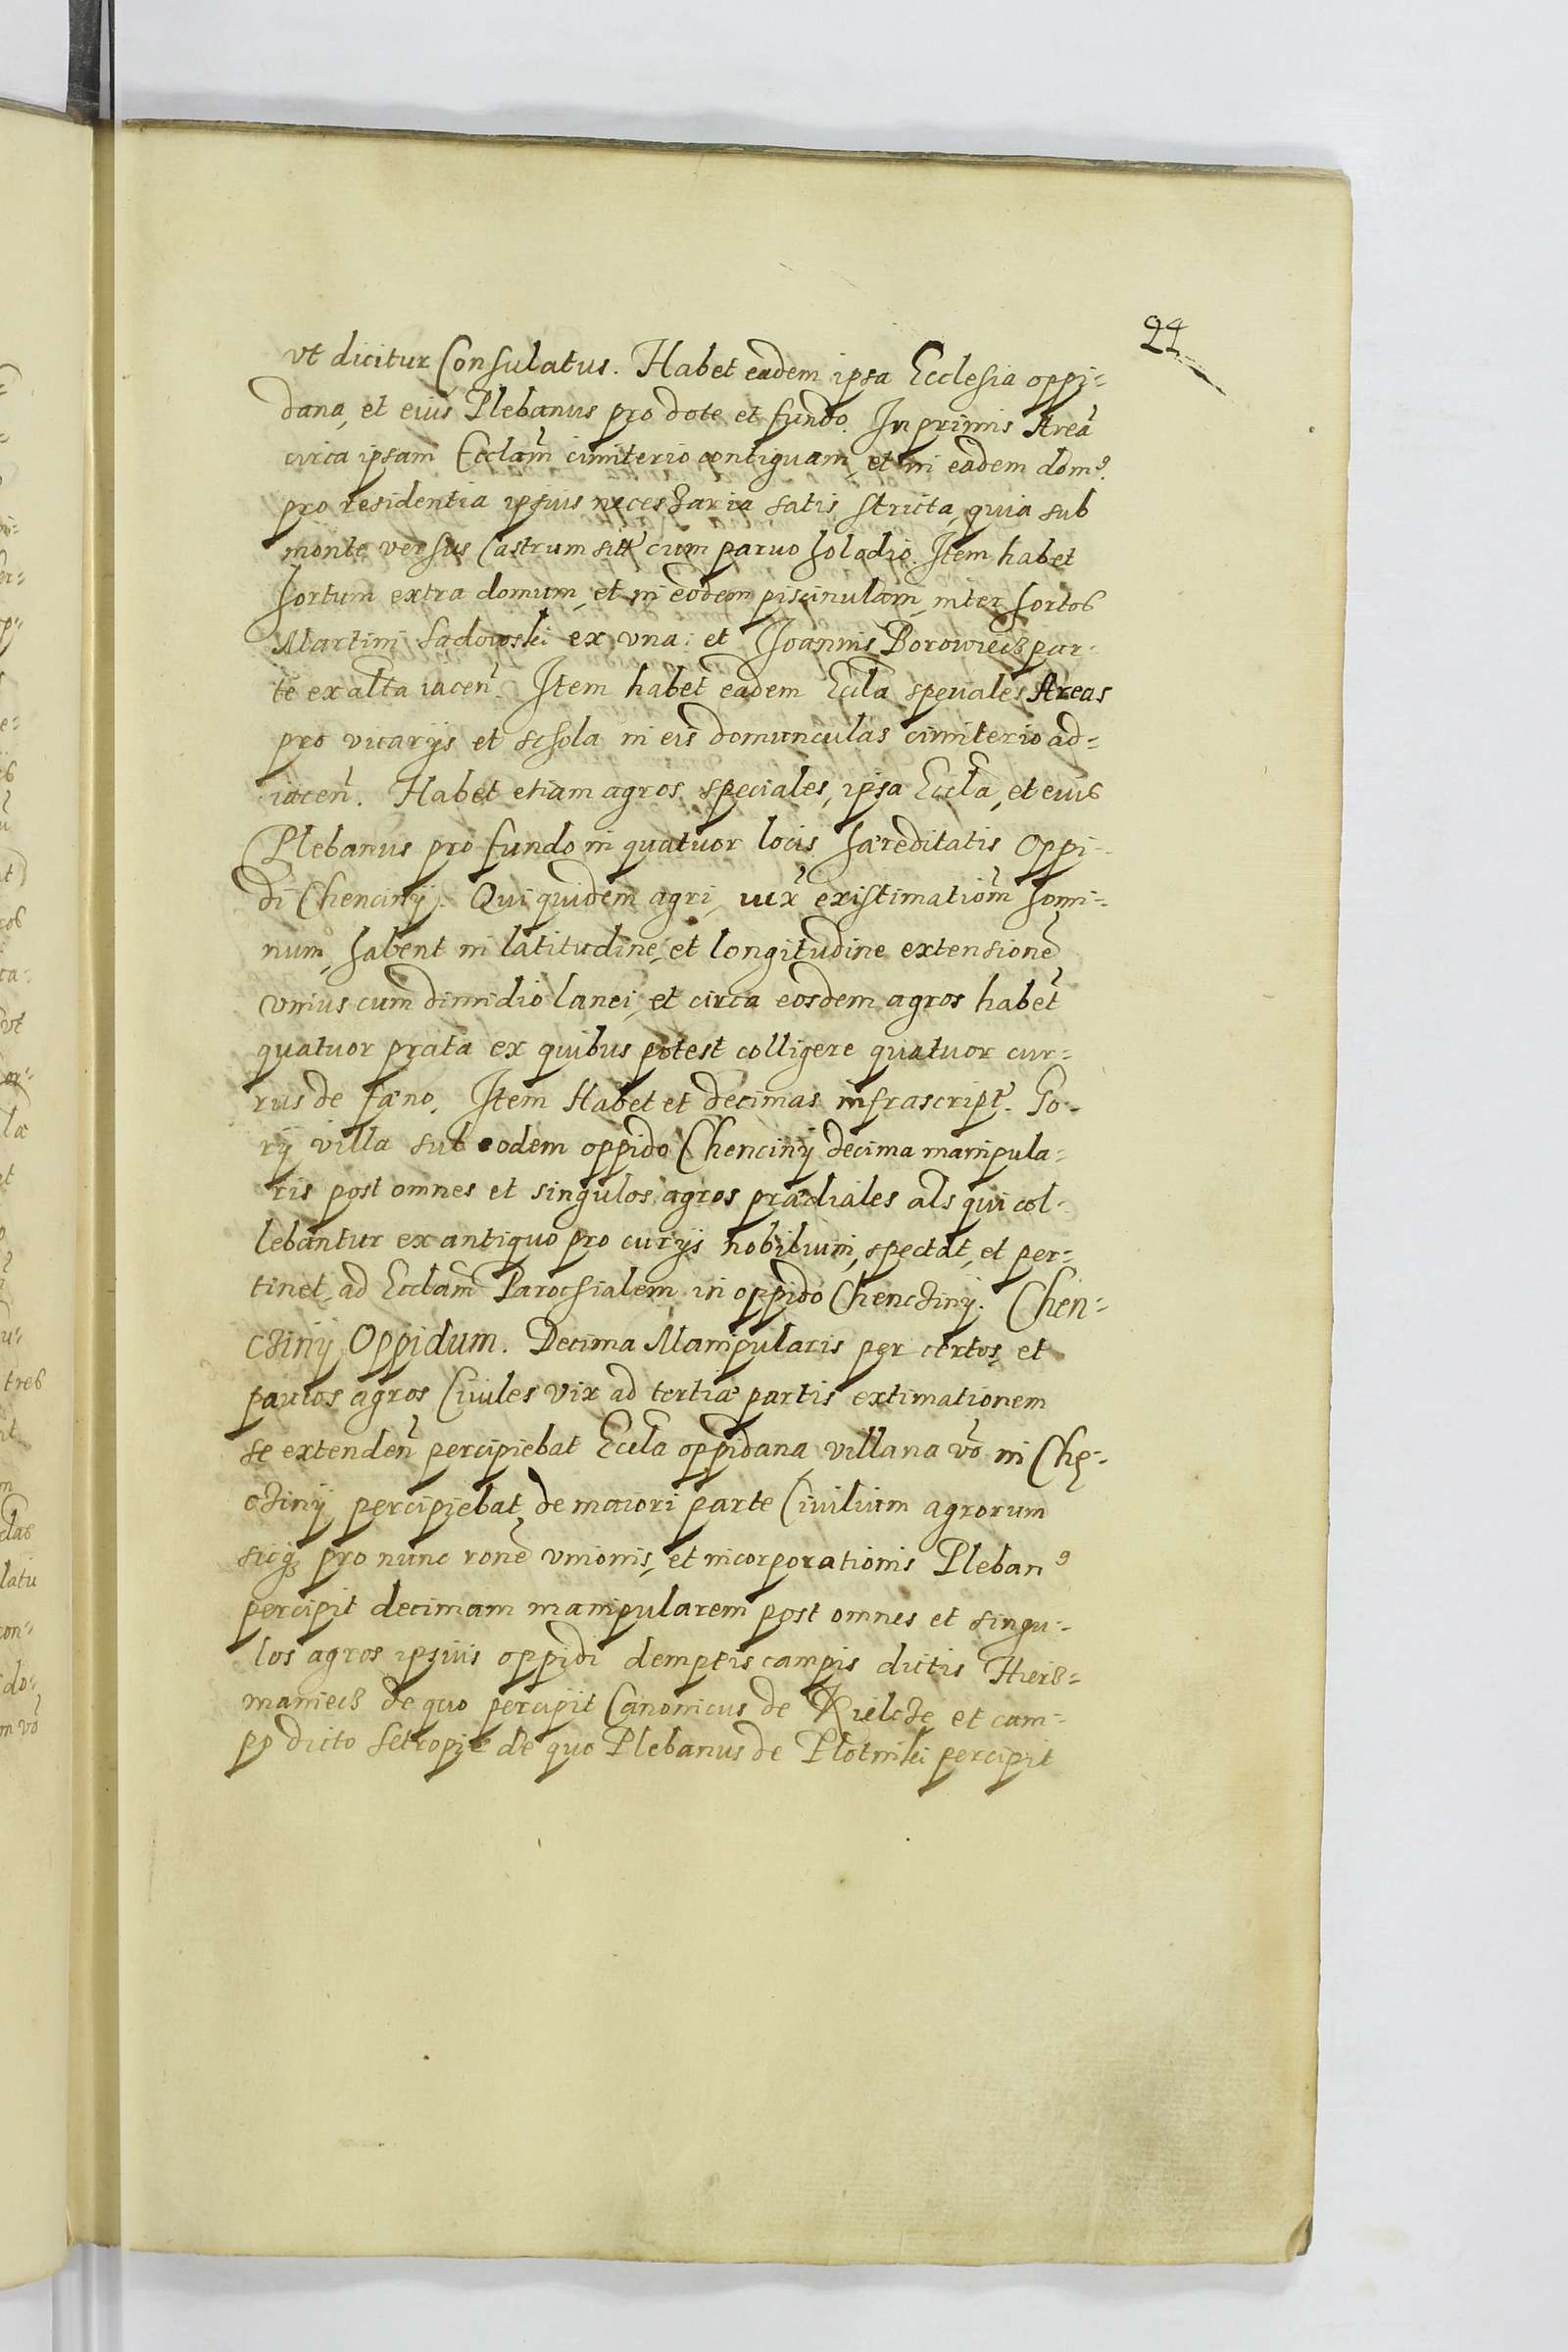 24
vt dicitur Consulatus. Habet eadem ipsa Ecclesia oppi=
dana, et eius Plebanus pro dote et fundo. Inprimis Areā
circa ipsam Ecclām cimiterio contiguam, et in eadem domꝰ
pro residentia ipsius necessaria satis stricta, quia sub
monte versus Castrum sitt̃ cum paruo hol adio. Item habet
hortum extra domum, et in eodem piscinulam, inter hortos
Martini Sadowski ex vna: et Joannis Borowiecz par-
te ex alta iaceñ. Item habet eadem Eccła speciales Areas
pro vicarijs et schola in eis domunculas cimiterio ad=
iaceñ. Habet etiam agros speciales, ipsa Eccła, et eius
Plebanus pro fundo in quatuor locis hæreditatis Oppi-
di Chencinij. Qui quidem agri, iux̃ existimatiōm homi-
num, habent in latitudine, et longitudine extensionē
vnius cum dimidio lanei, et circa eosdem agros habet
quatuor prata ex quibus potest colligere quatuor cur-
rus de fæno. Item Habet et decimas infrascript̃. Go-
rij villa sub eodem oppido Chencinij decima manipula=
ris post omnes et singulos agros prædiales als qui col-
lebantur ex antiquo pro curijs nobilium, spectat, et per-
tinet, ad Ecclām Parochialem in oppido Chencziny. Chen=
czinij Oppidum. Decima Manipularis per certos, et
paucos agros Ciuiles vix ad tertiæ partis extimationem
se extendeñ percipiebat Eccła oppidana villana vō in Chę-
czinij percipiebat de maiori parte Ciuilium agrorum
sicq̨ pro nunc ronē vnionis, et incorporationis Plebanꝰ
percipit decimam manipularem post omnes et singu-
los agros ipsius oppidi demptis campis dictis Hierz=
maniecz de quo percipit Canonicus de Kielcze et cam-
po dicto Setropie de quo Plebanus de Plotniki percipit